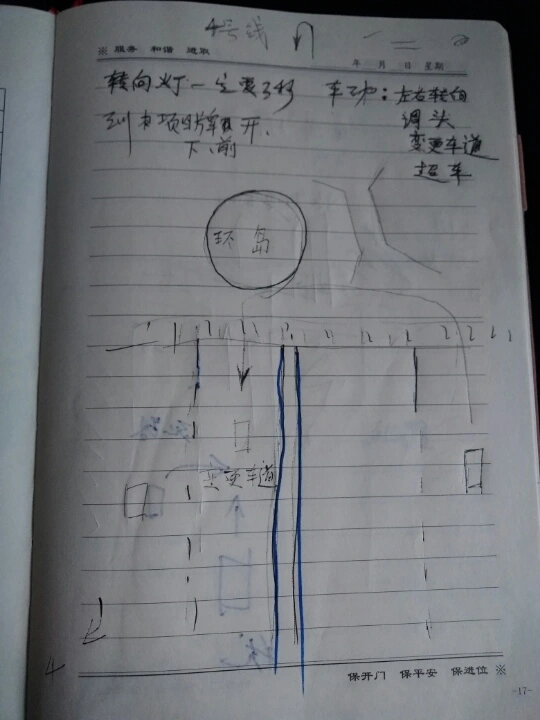 4号线
※ 服务 和谐 进取
年 月 日 星期
转向灯一定要 车动：左右转向
调头
到 项 开.
下、前
变更车道
超车
环岛
变更车道
4
保开门 保平安 保进位 ※
-17-